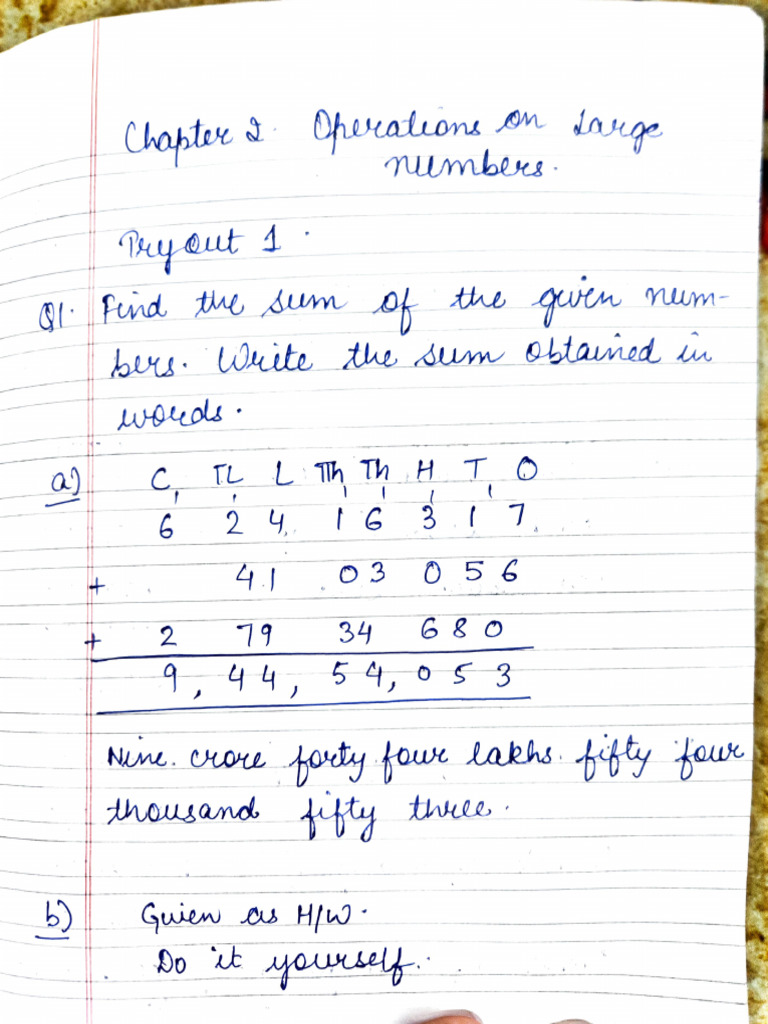 Chapter 2. Operations on Large
numbers.
Try out 1.
Q1. Find the sum of the given num-
bers. Write the sum obtained in
words.
a) C TL L TTh Th H T O
6 2 4 1 6 3 1 7
+ 41 03 056
+ 2 79 34 680
9, 44, 54, 053
Nine. crore forty four lakhs. fifty four
thousand fifty three.
b) Given as H/W.
Do it yourself.